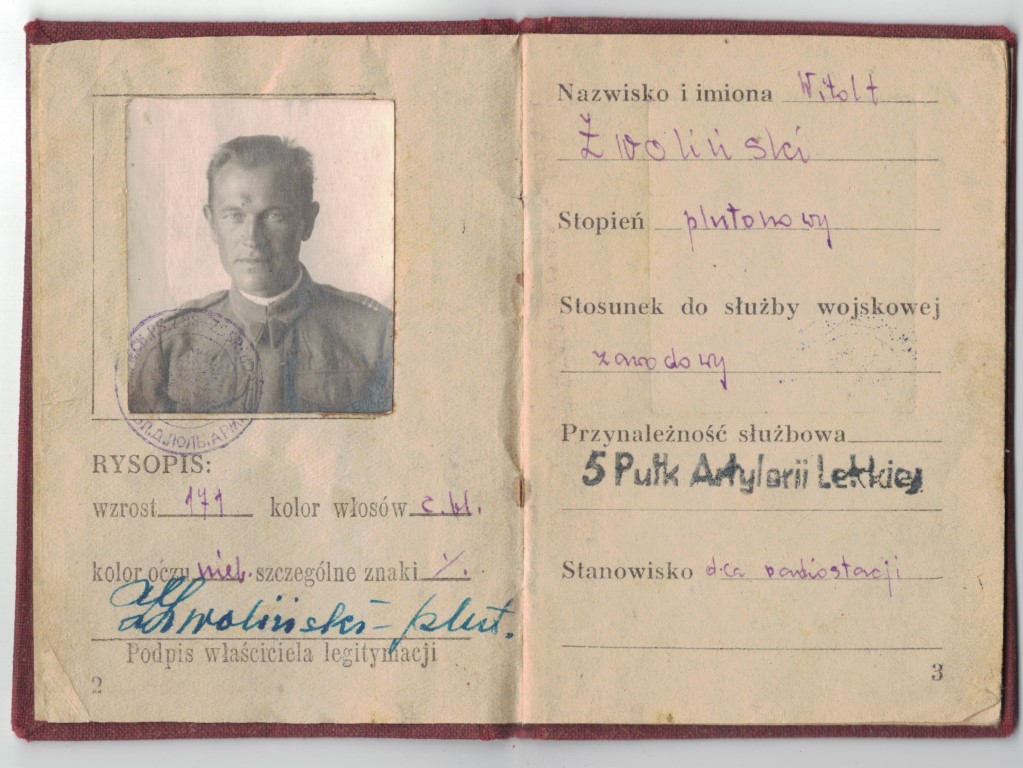 RYSOPIS:
wzrost 171 kolor włosów c. bl.
kolor oczu nieb. szczególne znaki %.
Zwoliński – plut.
Podpis właściciela legitymacji
2
Nazwisko i imiona Witolt
Zwoliński
Stopień plutonowy
Stosunek do służby wojskowej
zawodowy
Przynależność służbowa
5 Pułk Artylerii Lekkiej
Stanowisko d-ca radiostacji
3